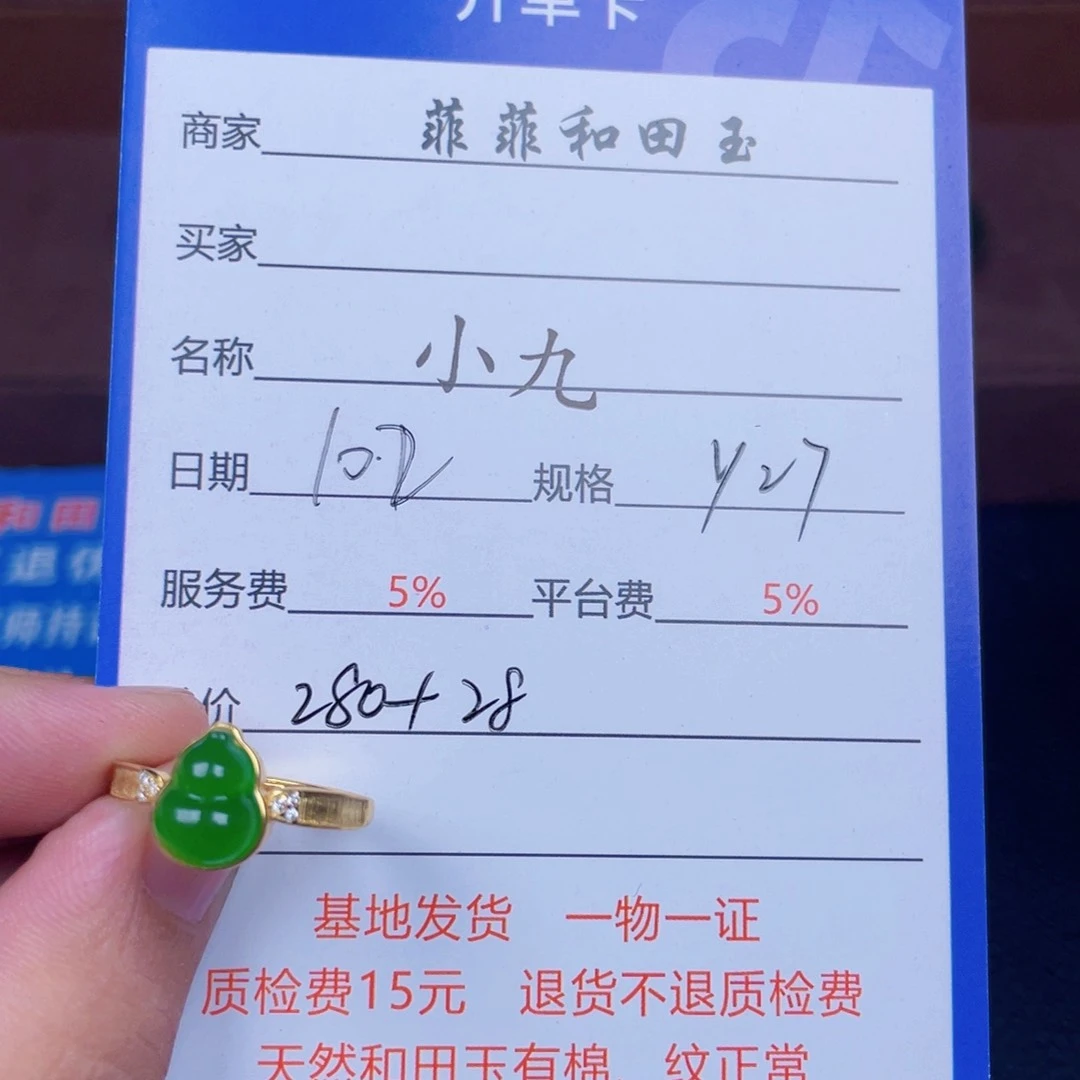 开单卡
商家 菲菲和田玉
买家
名称 小九
日期 10.2 规格 Y27
服务费 5% 平台费 5%
价 280+28
基地发货 一物一证
质检费15元 退货不退质检费
天然和田玉有棉、纹正常
和田
退
师持